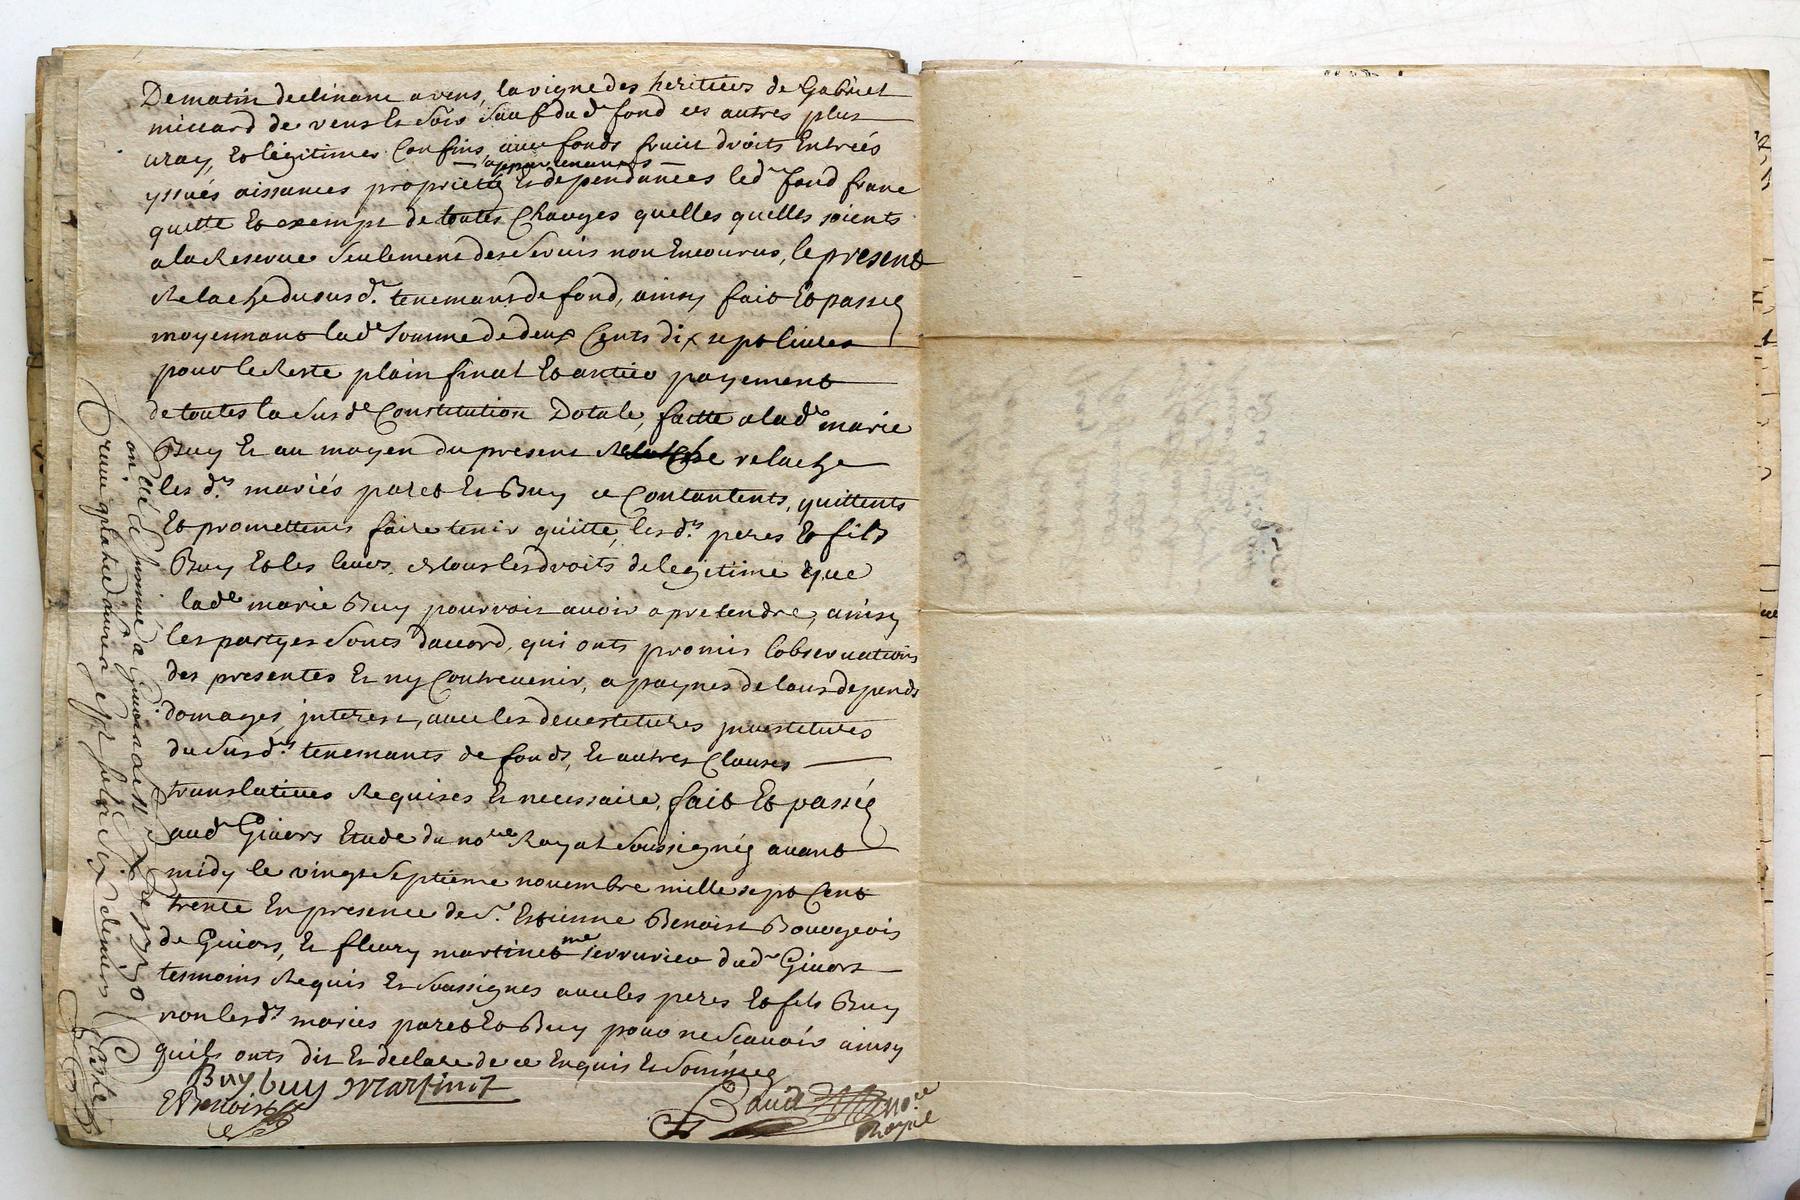 De matin declinant a vens, la vigne des heritiers de Gabriel
miccard de vens et soir sauf dud. fond ces autres plus
vray, et legitimes Confins avec fonds fruit droits Entrées
appartenances
yssuës aissances proprietés Et dependances led. fond franc
quitte Et exempt de toutes Charges quelles quelles soients
a la Reserve seulement des servis non Encourus, le present
Relache du susd. tenemans de fond, ainsy fait Et passé
moyennant lad. somme de deux Cents dix sept livres
pour le Reste plain final Et antier payement
de toutes la susd.e Constitution Dotale, faitte a lad.e marie
Buy Et au moyen du present relache
les d.s mariés paret Et Buy ce Contantents, quittents
Et promettents faire tenir quitte, les d.s peres Et fils
Buy Et les leurs, de tous les droits de legitime que
lad.e marie Buy pourroit avoir a pretendre, ainsy
les partyes sonts d'accord, qui onts promis l'observations
des presentes Et ny Contrevenir, a paynes de tous depends
domages, jnterest, avec les devestitures jnvestitures
du susd.s tenemants de fonds, Et autres Clauses
translatives Requises Et necessaire, fait Et passé
aud. Givors Etude du no.re Royal soussigné avant
midy le vingt septieme novembre mille sept Cent
trente En presence de S.r Estienne Benoist Bourgeois
de Givors, Et fleury martinet m.e serrurier dud. Givors
tesmoins Requis Et soussignes avec les peres Et fils Buy
non les d.s mariés paret Et Buy pour ne scavoir ainsy
quils onts dit Et declaré de ce Enquis Et sommés
Buy buy Martinet
EBenoist
no.re
Royal
Con.llé Et Jnsinué a Givors ce
Receu quatre livres